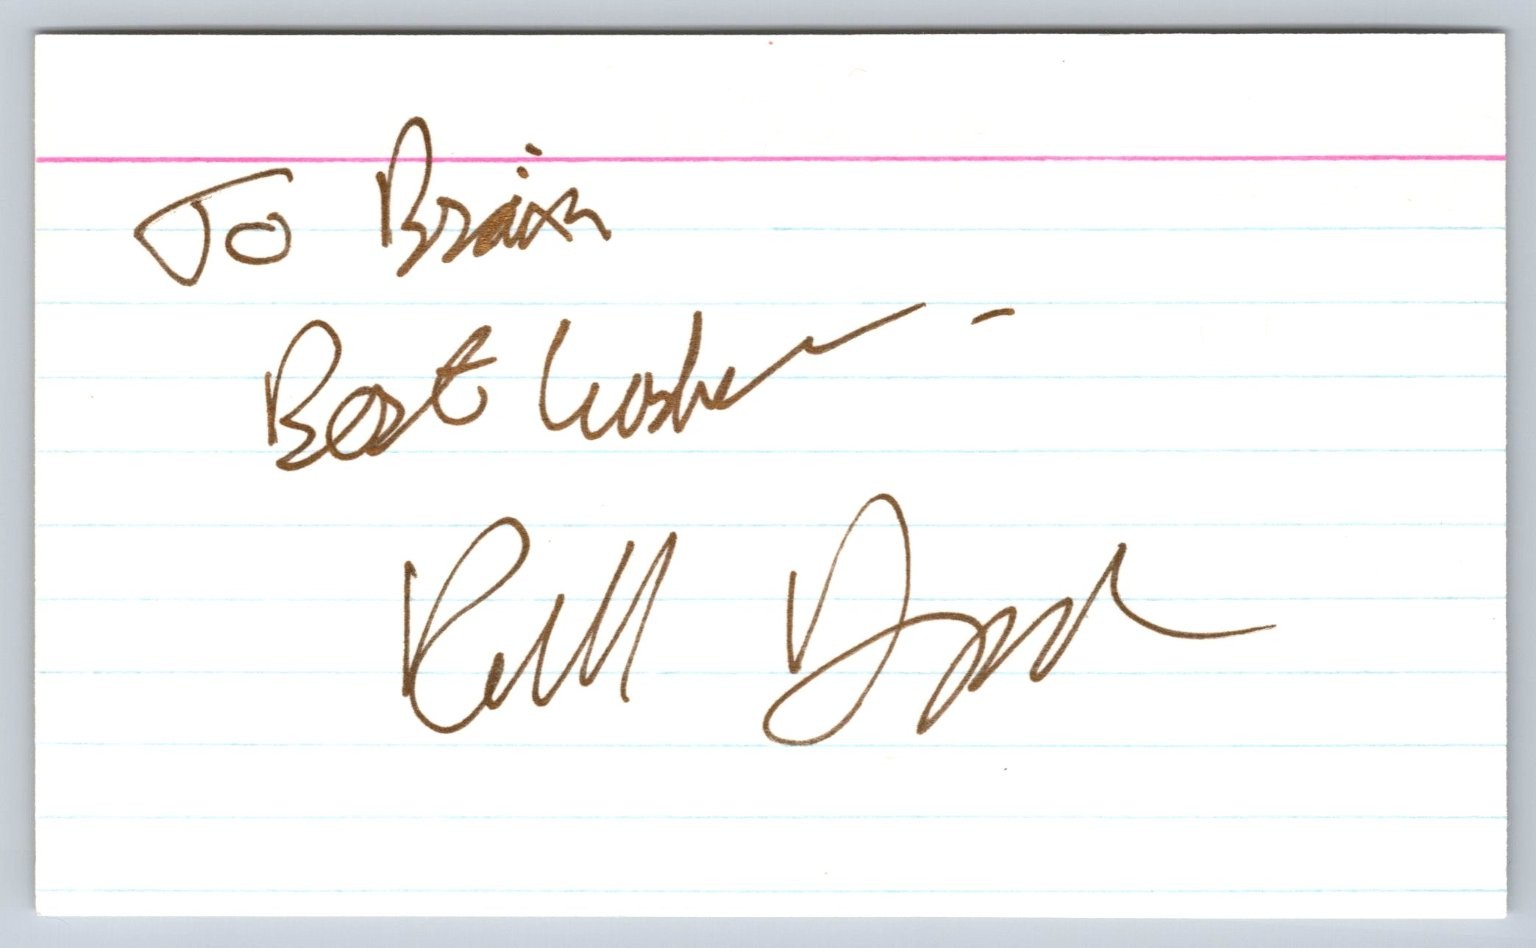 To Brian
Best Wishes -
Bill